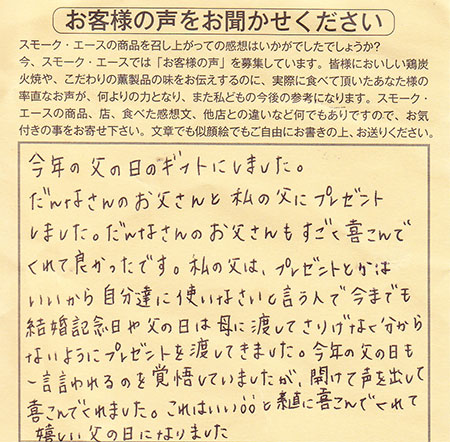 お客様の声をお聞かせください
スモーク・エースの商品を召し上がっての感想はいかがでしたでしょうか?
今、スモーク・エースでは「お客様の声」を募集しています。皆様においしい鶏炭
火焼や、こだわりの薫製品の味をお伝えするのに、実際に食べて頂いたあなた様の
率直なお声が、何よりの力となり、また私どもの今後の参考になります。スモーク・
エースの商品、店、食べた感想文、他店との違いなど何でもありですので、お気
付きの事をお寄せ下さい。文章でも似顔絵でもご自由にお書きの上、お送りください。
今年の父の日のギフトにしました。
だんなさんのお父さんと私の父にプレゼント
しました。だんなさんのお父さんもすごく喜こんで
くれて良かったです。私の父は、プレゼントとかは
いいから自分達に使いなさいと言う人で今までも
結婚記念日や父の日は母に渡してさりげなく分から
ないようにプレゼントを渡してきました。今年の父の日も
一言言われるのを覚悟していましたが、開けて声を出して
喜こんでくれました。これはいい と素直に喜こんでくれて
嬉しい父の日になりました